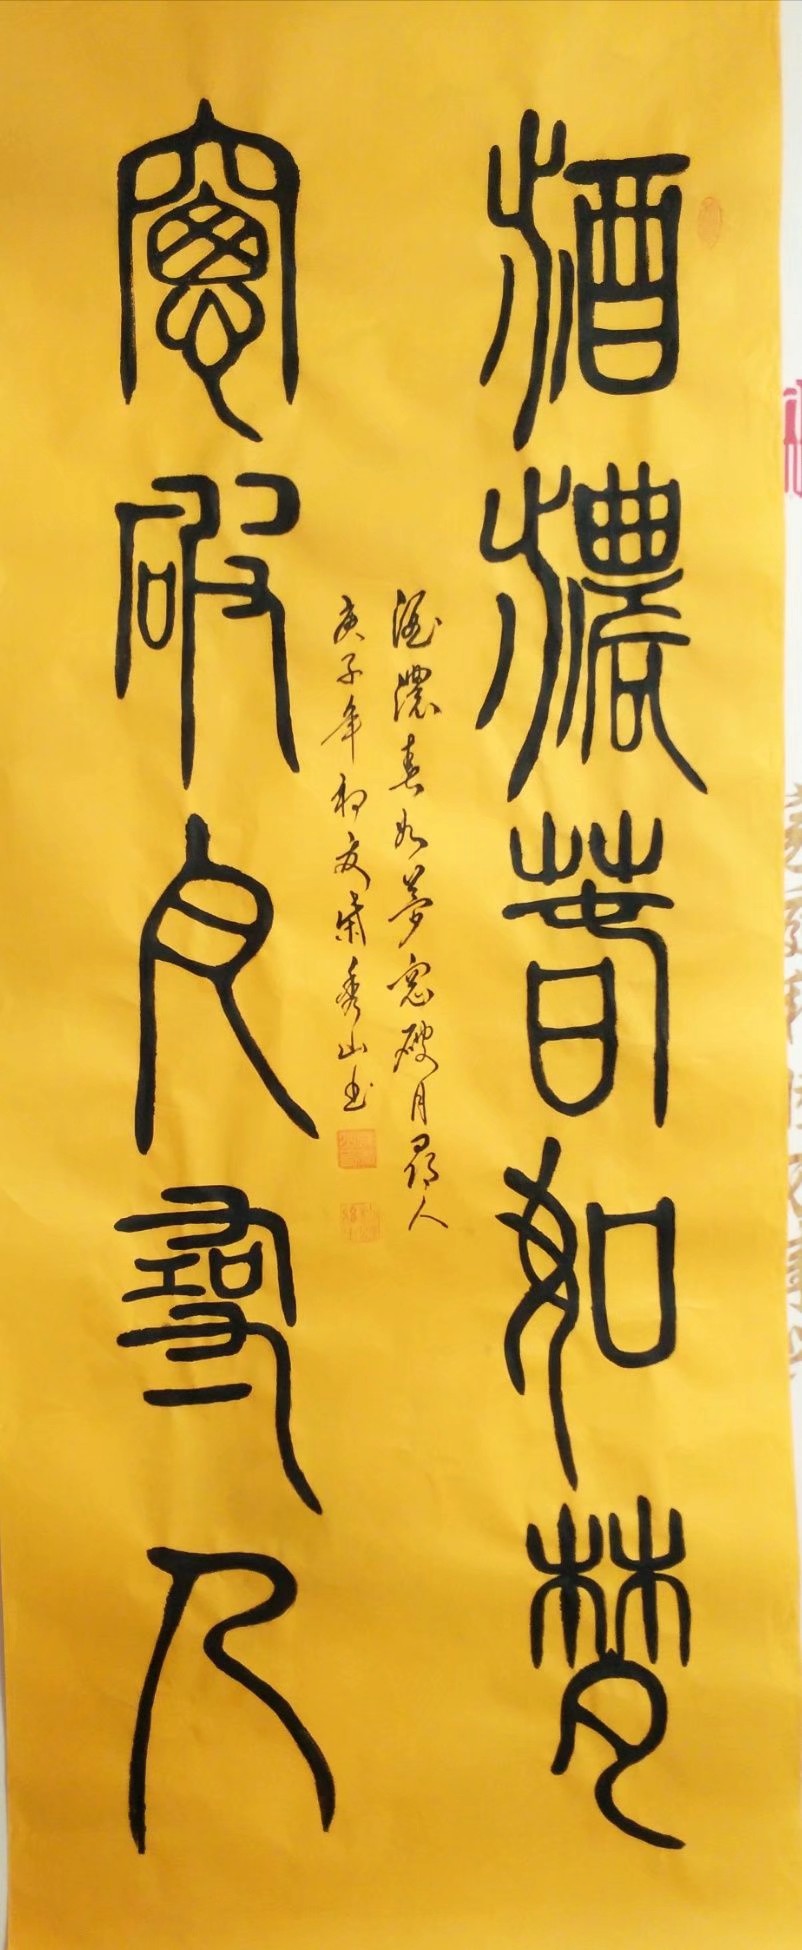 酒濃春如夢
窓破月尋人
酒濃春如夢窓破月尋人
庚子年初夏 秀山书